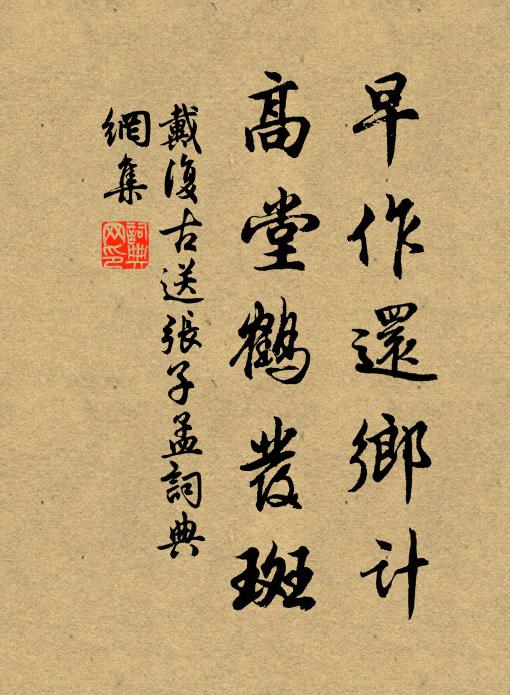 早作還鄉計
高堂鶴發斑
戴復古送張子孟詞典
網集
詞典
網印